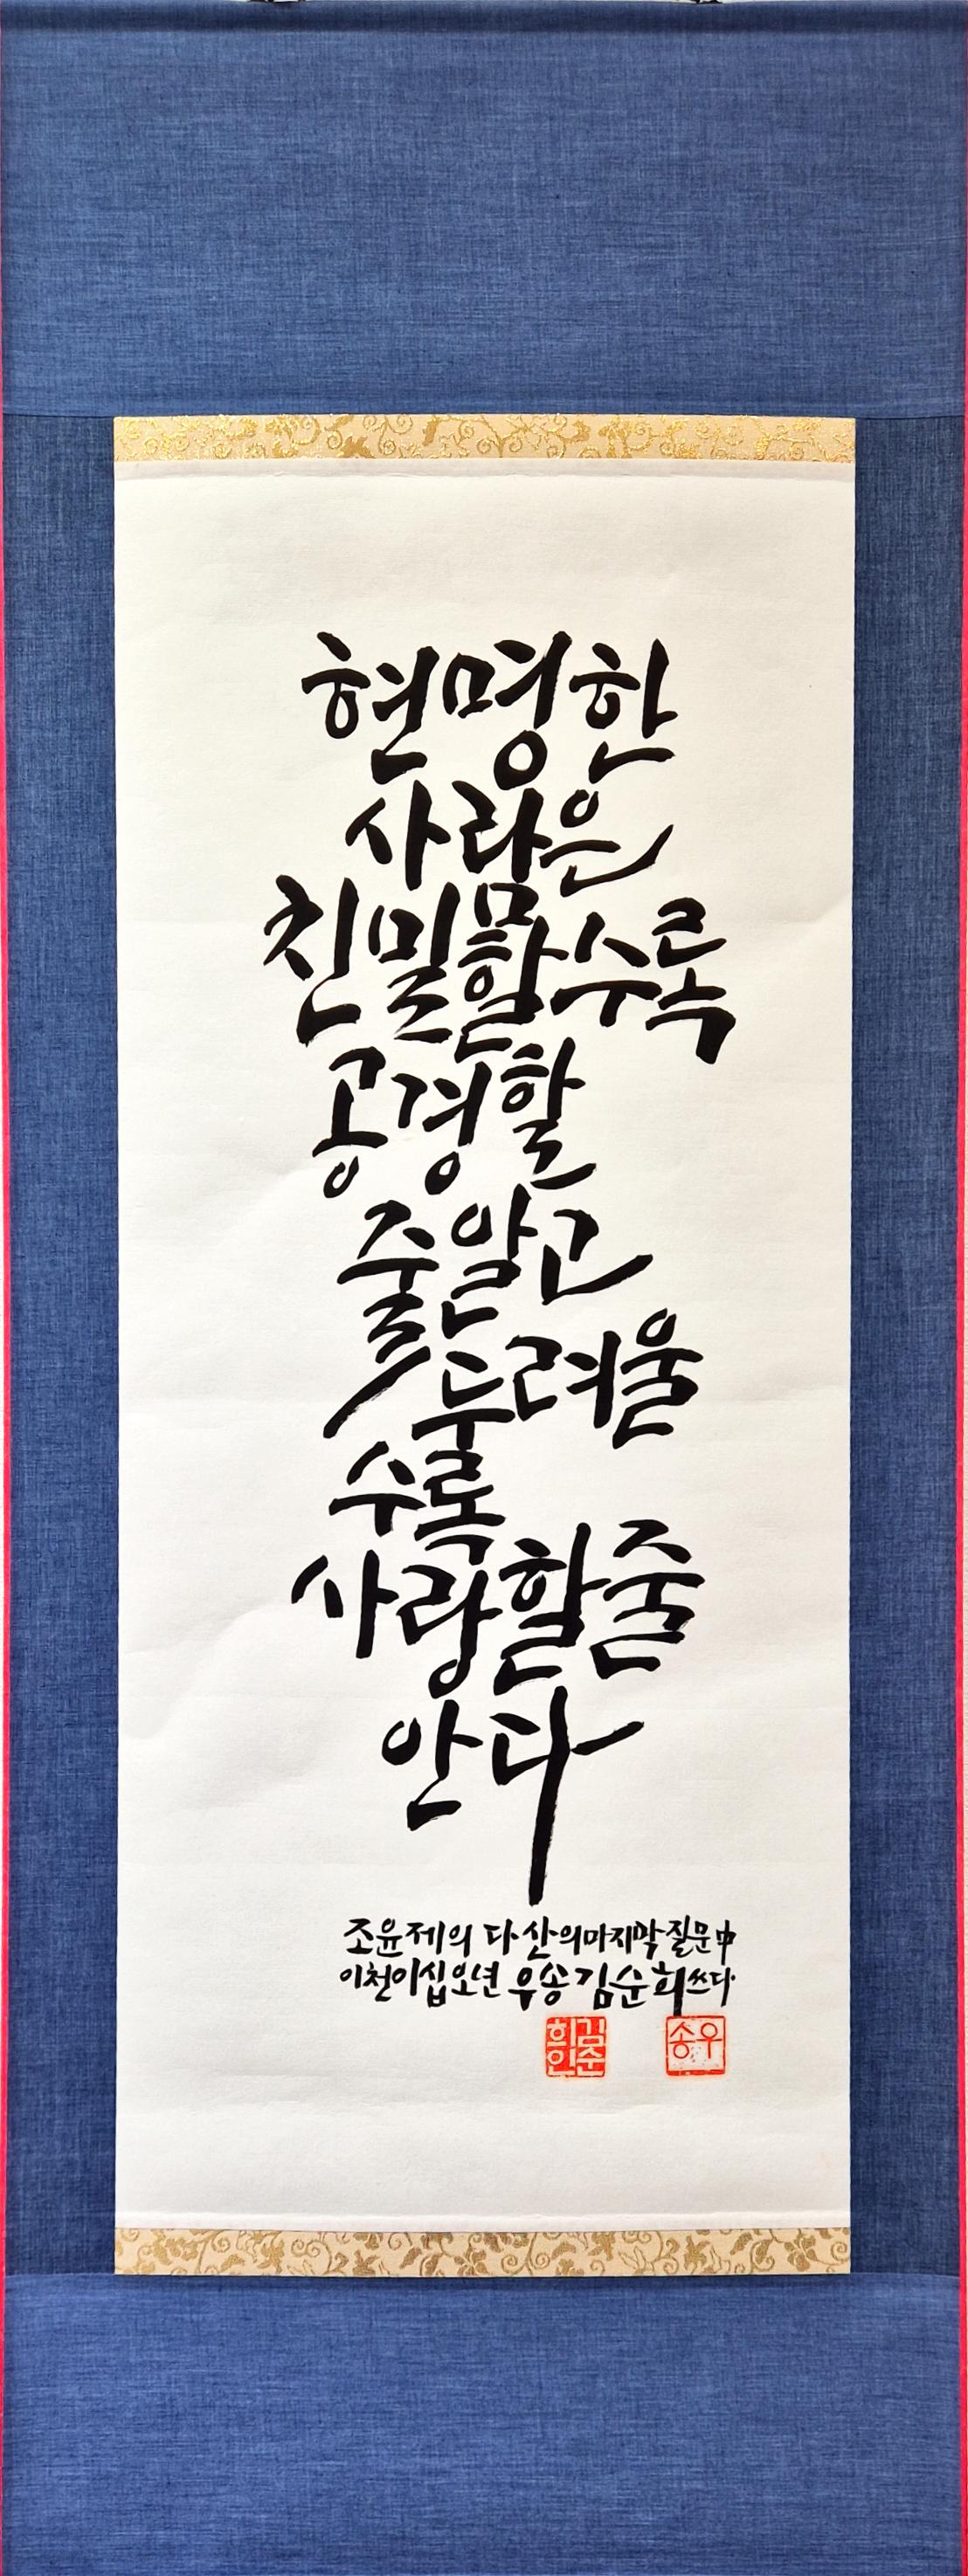 현명한
사람은
친밀할수록
공경할
줄알고
두려울
수록
사랑할줄
안다
조윤제의 다산의마지막질문中
이천이십오년 우송 김순희쓰다
김순희인
우송